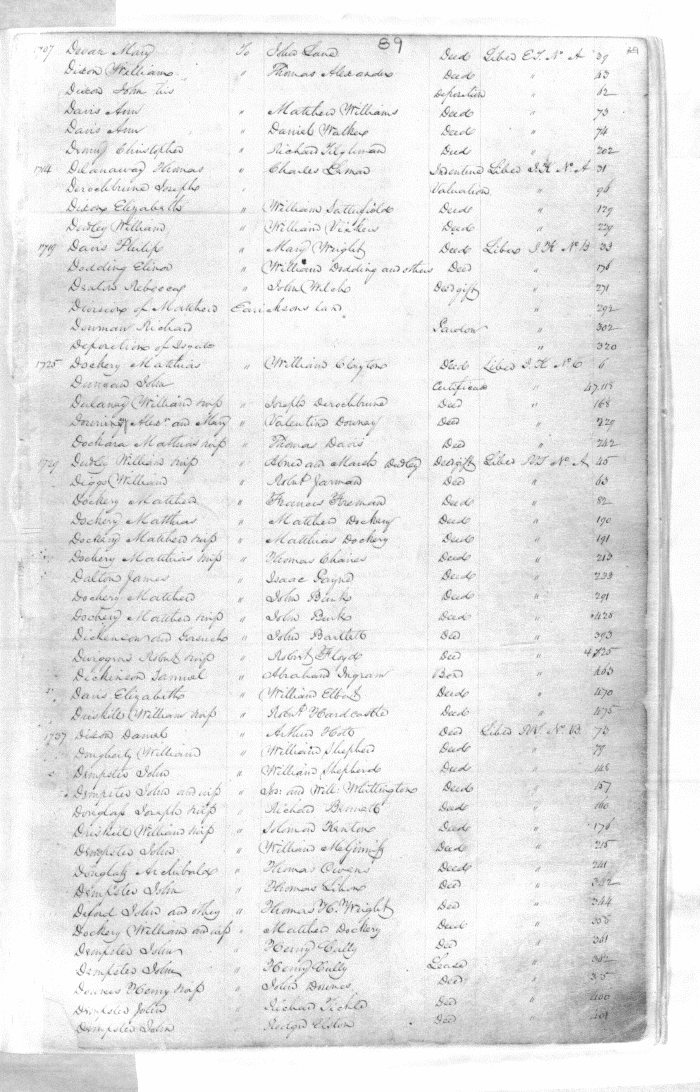 89
1707 Devar Mary To John Lane Deed Liber E.T. No A 39
Dixon William " Thomas Alexander Deed " 43
Dixon John his Deposition " 62
Davis Ann " Matthew Williams Deed " 73
Davis Ann " Daniel Walker Deed " 74
Denny Christopher " Richard Tilghman Deed " 202
1714 Delanaway Thomas " Charles Lemar Indenture Liber I.K No A 31
Derochbrune Joseph " Valuation " 96
Dixon Elizabeth " William Sattefield Deed " 129
Dudley William " William Vickers Deed " 229
1719 Davis Philip " Mary Wright Deed Liber I.K No B 33
Dodding Elinor " William Dodding and others Deed " 176
Deaton Rebecca " John Welch Deed gift " 271
Division of Matthew Earicksons land " 292
Dowman Richard Pardon " 302
Deposition of " 320
1725 Dockery Matthias " William Clayton Deed Liber I.K No C 6
Duncan John Certificate " 47,118
Dulanay William wife " Joseph Derochbrune Deed " 168
Downing Alexr and Mary " Valentine Downey Deed " 229
Dockara Mathias wife " Thomas Davis Deed " 242
1729 Dudley William wife " Abner and March Dudley Deed gift Liber R.T. No A 45
Diggs William " Robert Jarman Deed " 63
Dockery Matthew " Frances Freman Deed " 82
Dockery Matthias " Matthew Dockery Deed " 190
Dockery Matthew wife " Matthias Dockery Deed " 191
Dockery Matthias wife " Thomas Chaires Deed " 213
Dalton James " Isaac Payne Deed " 233
Dockery Matthew " John Burk Deed " 291
Dockery Matthew wife " John Burk Deed " 428
Dickenson " John Bartlett Deed " 393
Dwiggins Robert wife " Robert Floyd Deed " 425
Dickinson Samuel " Abraham Ingram Bond " 463
Davis Elizabeth " William Elbert Deed " 470
Driskill William wife " Robert Hardcastle Deed " 475
1737 Dixon Daniel " Arthur Holt Deed Liber No B. 73
Dougherty William " William Shepherd Deed " 79
Dempster John " William Shepherd Deed " 148
Dempster John and wife " and Will: Whittington Deed " 157
Douglass Joseph wife " Richard Bennett Deed " 160
Driskill William wife " Solomon Kenton Deed " 176
Dempster John " William McGinnis Deed " 215
Douglass Archibald " Thomas Owens Deed " 241
Dempster John " Thomas Deed " 342
Deford John and others " Thomas H. Wright Deed " 344
Dockery William and wife " Matthew Dockery Deed " 356
Dempster John " Henry Cully Deed " 361
Dempster John " Henry Cully Lease " 362
Downes Henry wife " John Downes Deed " 365
Dempster John " Richard Deed " 400
Dempster John " Deed " 401